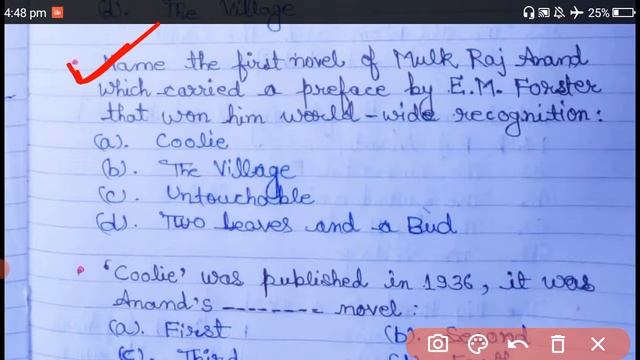 4:48 pm
25%
(d). The Village
Name the first novel of Mulk Raj Anand
which carried a preface by E.M. Forster
that won him world-wide recognition:
(a). Coolie
(b). The Village
(c). Untouchable
(d). Two Leaves and a Bud
'Coolie' was published in 1936, it was
Anand's -------- novel:
(a). First (b). Second
(c). Third